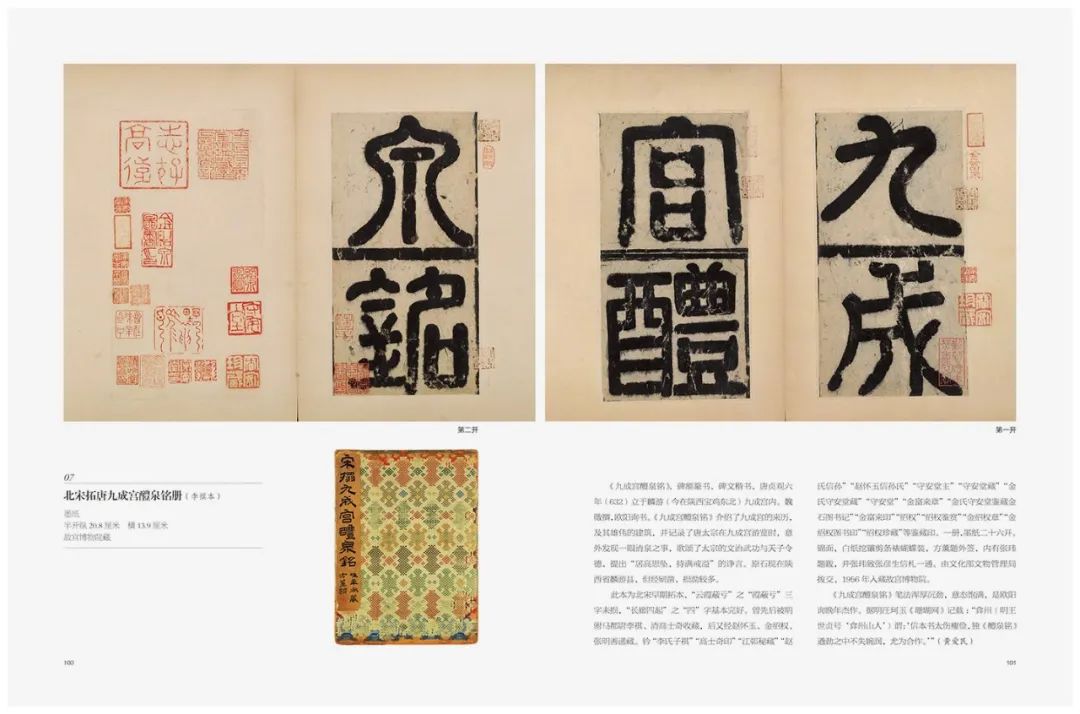 九成
宫醴
泉铭
志好
高远
第二开
第一开
07
北宋拓唐九成宫醴泉铭册（李祺本）
墨纸
半开纵 20.8 厘米 横 13.9 厘米
故宫博物院藏
宋搨九成宫醴泉銘
《九成宫醴泉铭》，碑额篆书，碑文楷书，唐贞观六
年（632）立于麟游（今在陕西宝鸡东北）九成宫内。魏
徵撰，欧阳询书。《九成宫醴泉铭》介绍了九成宫的来历，
及其雄伟的建筑，并记录了唐太宗在九成宫游览时，意
外发现一眼清泉之事，歌颂了太宗的文治武功与天子令
德，提出“居高思坠，持满戒溢”的诤言。原石现在陕
西省麟游县，但经刷凿，损泐较多。
此本为北宋早期拓本，“云霞蔽亏”之“霞蔽亏”三
字未损，“长廊四起”之“四”字基本完好。曾先后被明
驸马都尉李祺、清高士奇收藏，后又经赵怀玉、金绍权、
张明善递藏。钤“李氏子祺”“高士奇印”“江邨秘藏”“赵
氏信孙”“赵怀玉信孙氏”“守安堂主”“守安堂藏”“金
氏守安堂藏”“守安堂”“金富来章”“金氏守安堂鉴藏金
石图书记”“金富来印”“绍权”“绍权鉴赏”“金绍权章”“金
绍权图书印”“绍权珍藏”等鉴藏印。一册，墨纸二十六开。
锦面，白纸挖镶剪条裱蝴蝶装，方薰题外签，内有张玮
题跋，并张玮致张彦生信札一通。由文化部文物管理局
拨交，1956 年入藏故宫博物院。
《九成宫醴泉铭》笔法浑厚沉劲，意态饱满，是欧阳
询晚年杰作。据明汪珂玉《珊瑚网》记载：“弇州（明王
世贞号‘弇州山人’）谓：‘信本书太伤瘦俭，独《醴泉铭》
遒劲之中不失婉润，尤为合作。’”（黄爱民）
100
101